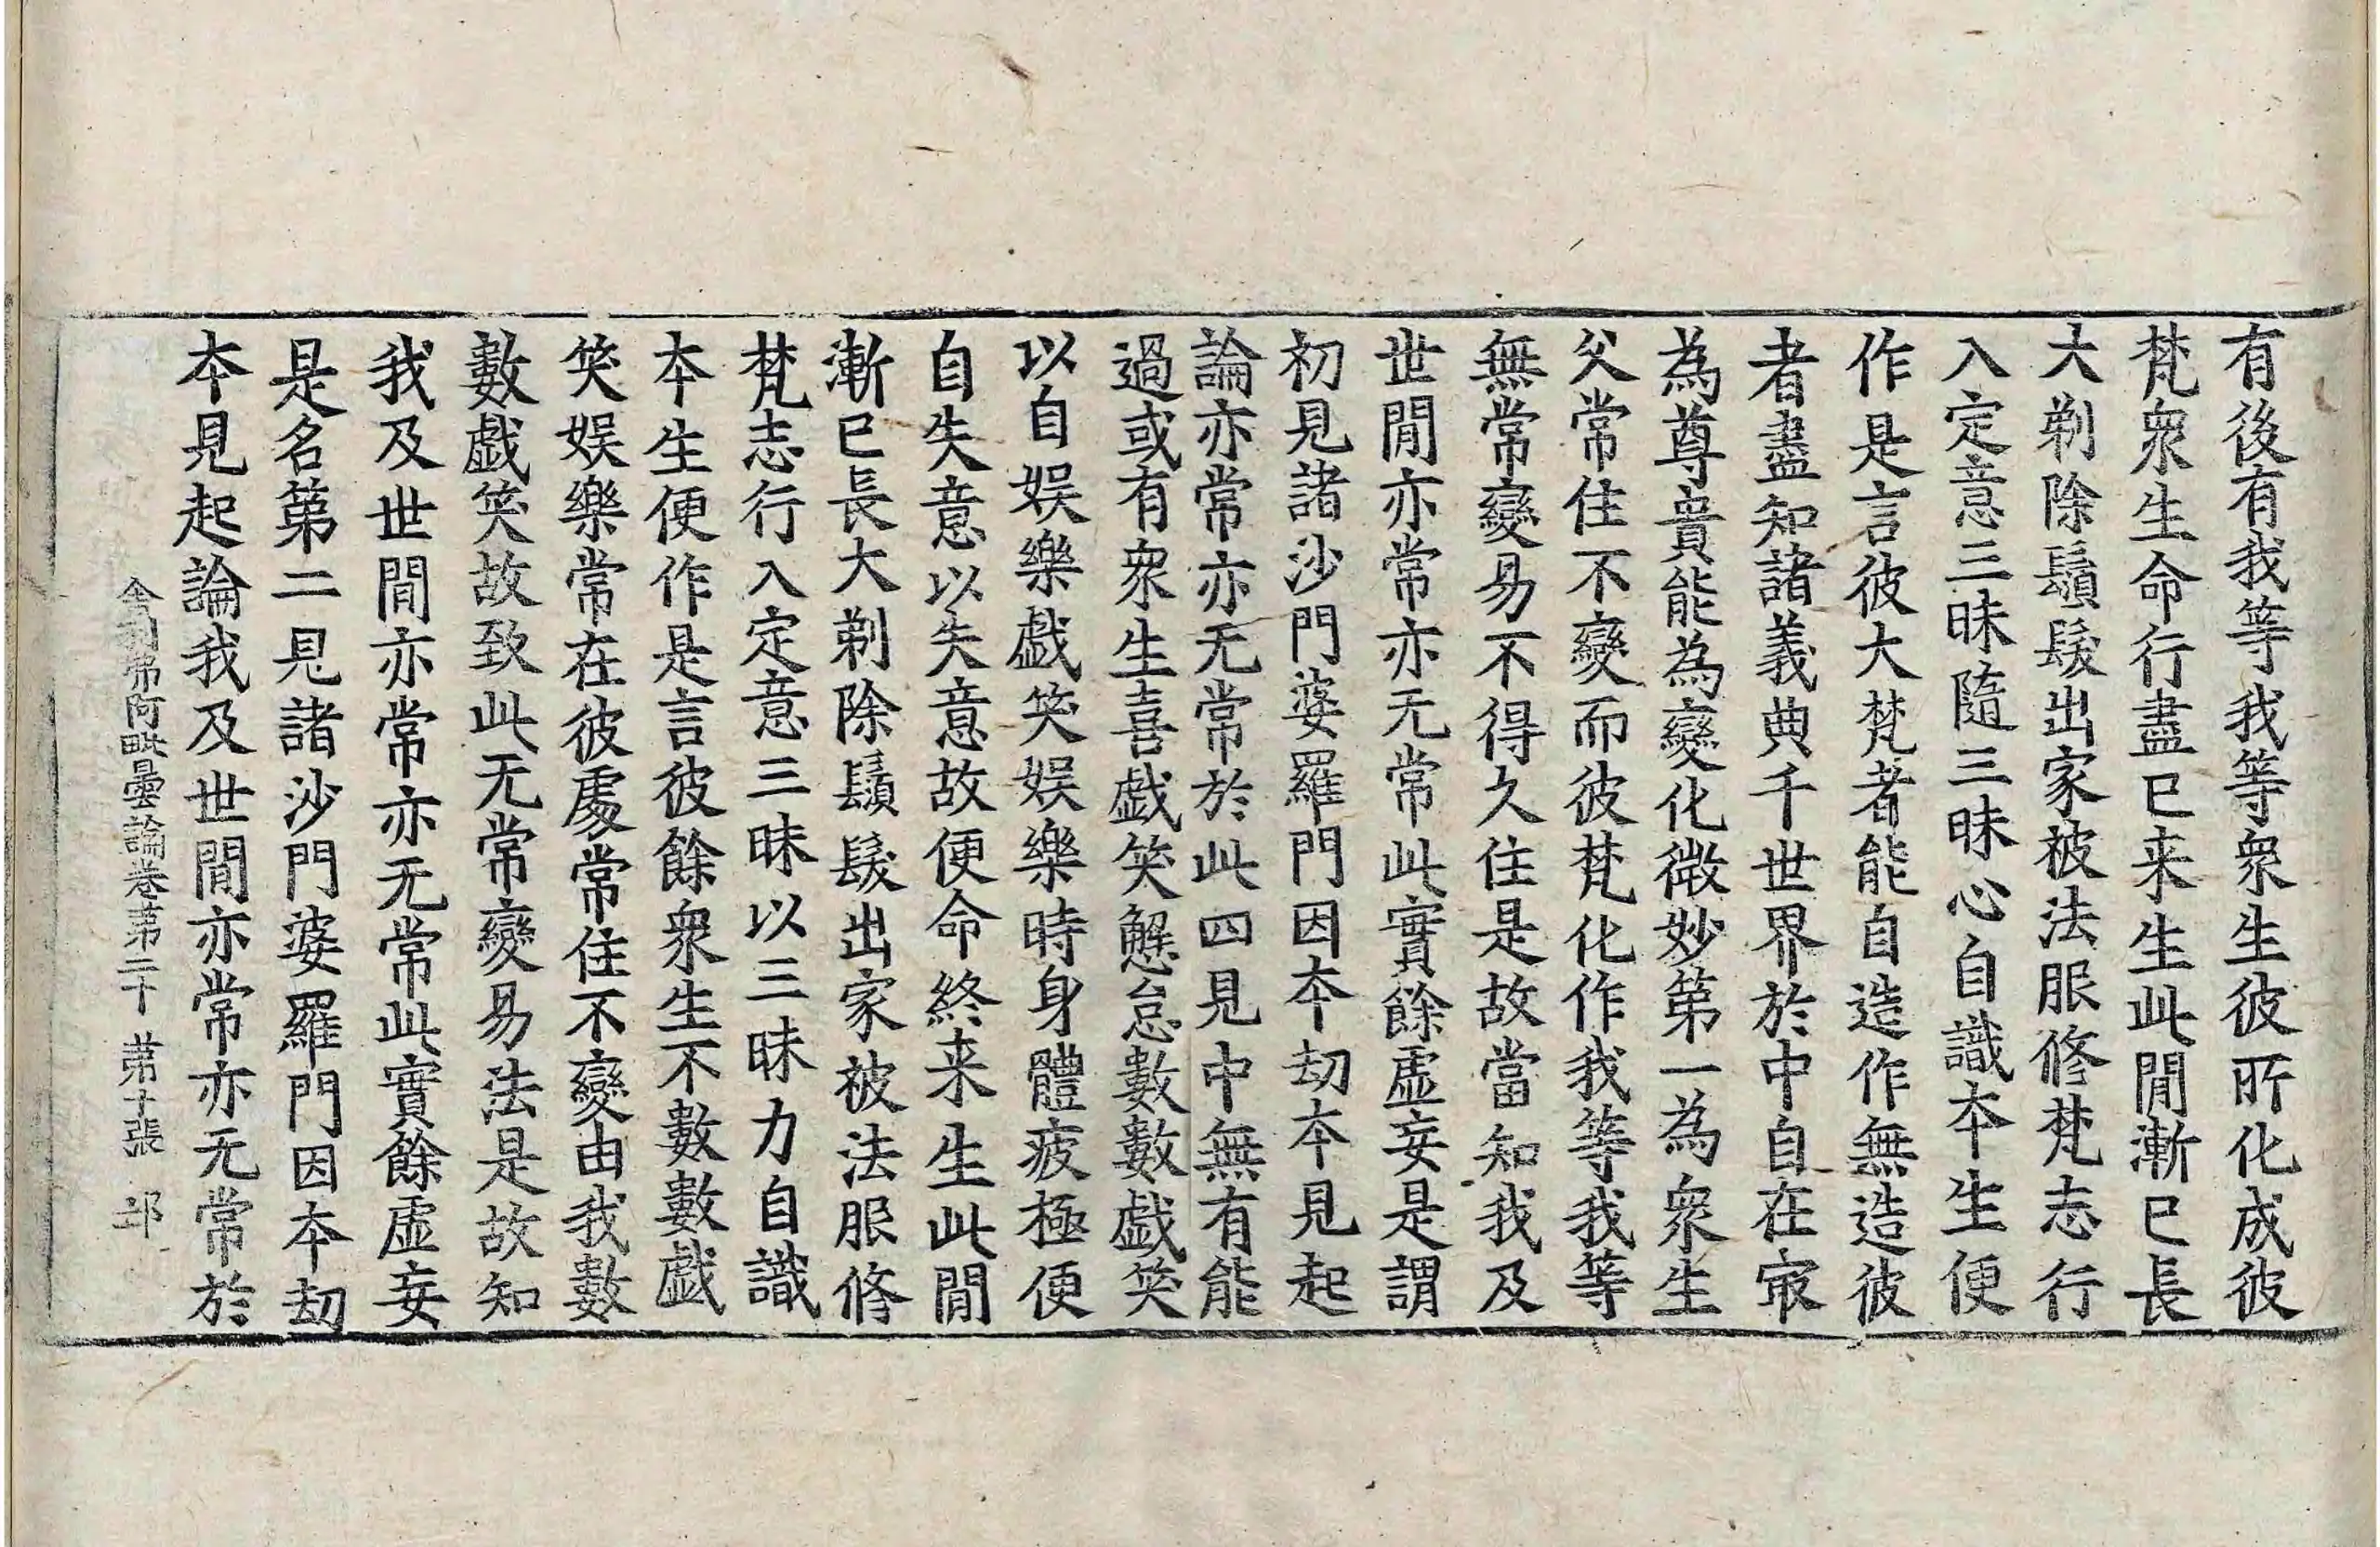 有後有我等我等衆生彼所化成彼
梵衆生命行盡已来生此閒漸已長
大剃除鬚髮出家被法服修梵志行
入定意三昧隨三昧心自識本生便
作是言彼大梵者能自造作無造彼
者盡知諸義典千世界於中自在㝡
為尊貴能為變化微妙第一為衆生
父常住不變而彼梵化作我等我等
無常變易不得久住是故當知我及
世閒亦常亦无常此實餘虛妄是謂
初見諸沙門婆羅門因本劫本見起
論亦常亦无常於此四見中無有能
過或有衆生喜戯笑懈怠數數戯笑
以自娱樂戯笑娱樂時身體疲極便
自失意以失意故便命終来生此閒
漸已長大剃除鬚髮出家被法服修
梵志行入定意三昧以三昧力自識
本生便作是言彼餘衆生不數數戯
笑娱樂常在彼處常住不變由我數
數戯笑故致此无常變易法是故知
我及世間亦常亦无常此實餘虛妄
是名第二見諸沙門婆羅門因本劫
本見起論我及世間亦常亦无常於
舍利弗阿毗曇論卷第二十 第十張